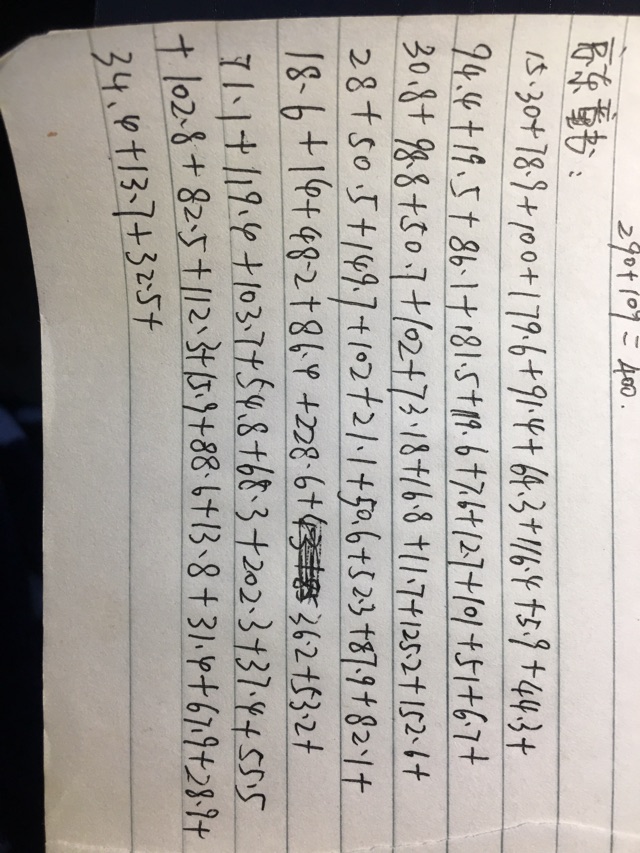 290+109=400.
京东童书:
15.30+78.9+100+179.6+91.4+64.3+116.4+5.9+44.3+
94.4+19.5+86.1+81.5+19.6+7.6+127+101+51+6.7+
30.8+98.8+50.7+102+73.18+16.8+11.7+125.2+152.6+
28+50.5+149.7+102+21.1+50.6+52.3+87.9+82.1+
18.6+14+48.2+86.4+228.6+362+53.2+
71.1+119.4+103.7+54.8+68.3+202.3+37.4+55.5
+102.8+82.5+112.3+15.9+88.6+13.8+31.4+67.9+28.9+
34.4+13.7+32.5+